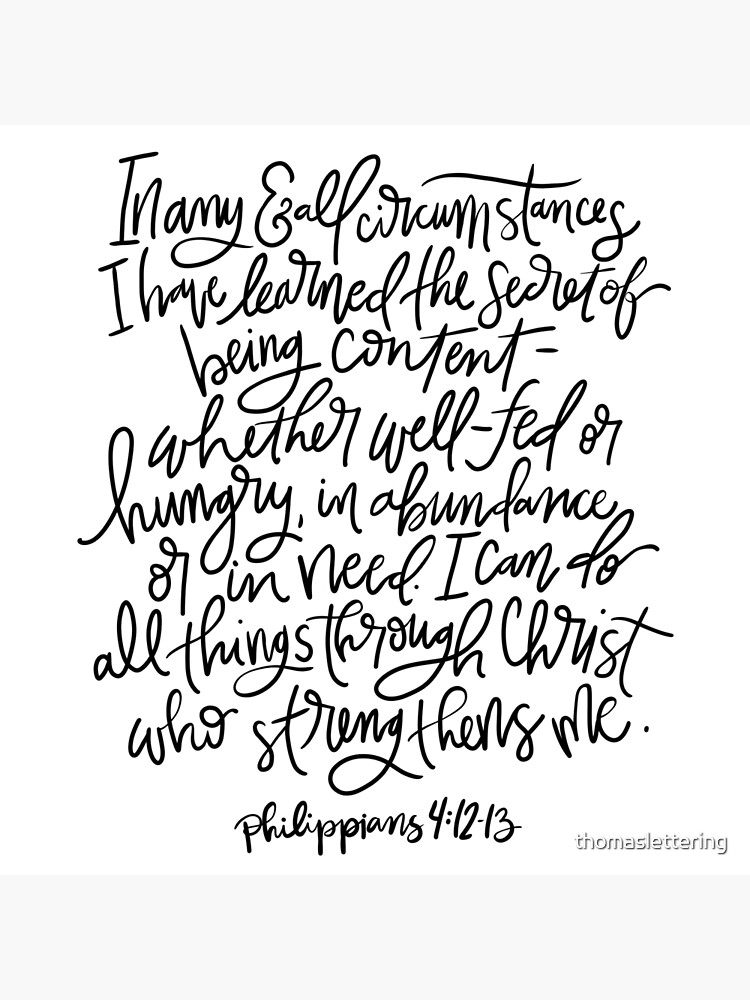 In any & all circumstances
I have learned the secret of
being content-
whether well-fed or
hungry, in abundance
or in need. I can do
all things through Christ
who strengthens me.
philippians 4:12-13
thomaslettering